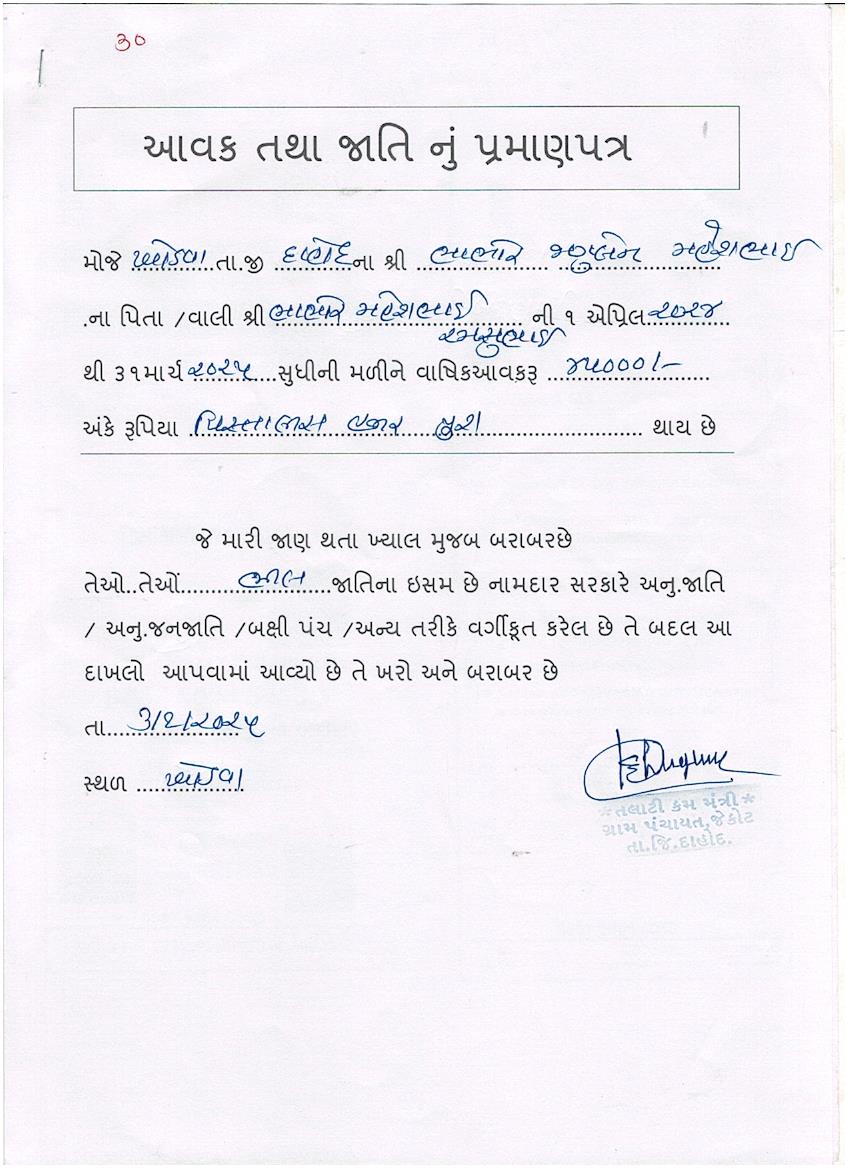 ૩૦
આવક તથા જાતિ નું પ્રમાણપત્ર
મોજે ખરેડવા તા.જી દાહોદના શ્રી ભાભોર મધુબેન મહેશભાઈ
.ના પિતા /વાલી શ્રી ભાભોર મહેશભાઈ ની ૧ એપ્રિલ ૨૦૨૪
રમસુભાઈ
થી ૩૧માર્ચ ૨૦૨૫ સુધીની મળીને વાષિકઆવકરૂ ૪૫૦૦૦/-
અંકે રૂપિયા પિસ્તાલીસ હજાર પુરા થાય છે
જે મારી જાણ થતા ખ્યાલ મુજબ બરાબરછે
તેઓ..તેઓં ભીલ જાતિના ઇસમ છે નામદાર સરકારે અનુ.જાતિ
/ અનુ.જનજાતિ /બક્ષી પંચ /અન્ય તરીકે વર્ગીકૃત કરેલ છે તે બદલ આ
દાખલો આપવામાં આવ્યો છે તે ખરો અને બરાબર છે
તા ૩/૨/૨૦૨૫
સ્થળ
*તલાટી કમ મંત્રી*
ગ્રામ પંચાયત,જેકોટ
તા.જિ.દાહોદ.